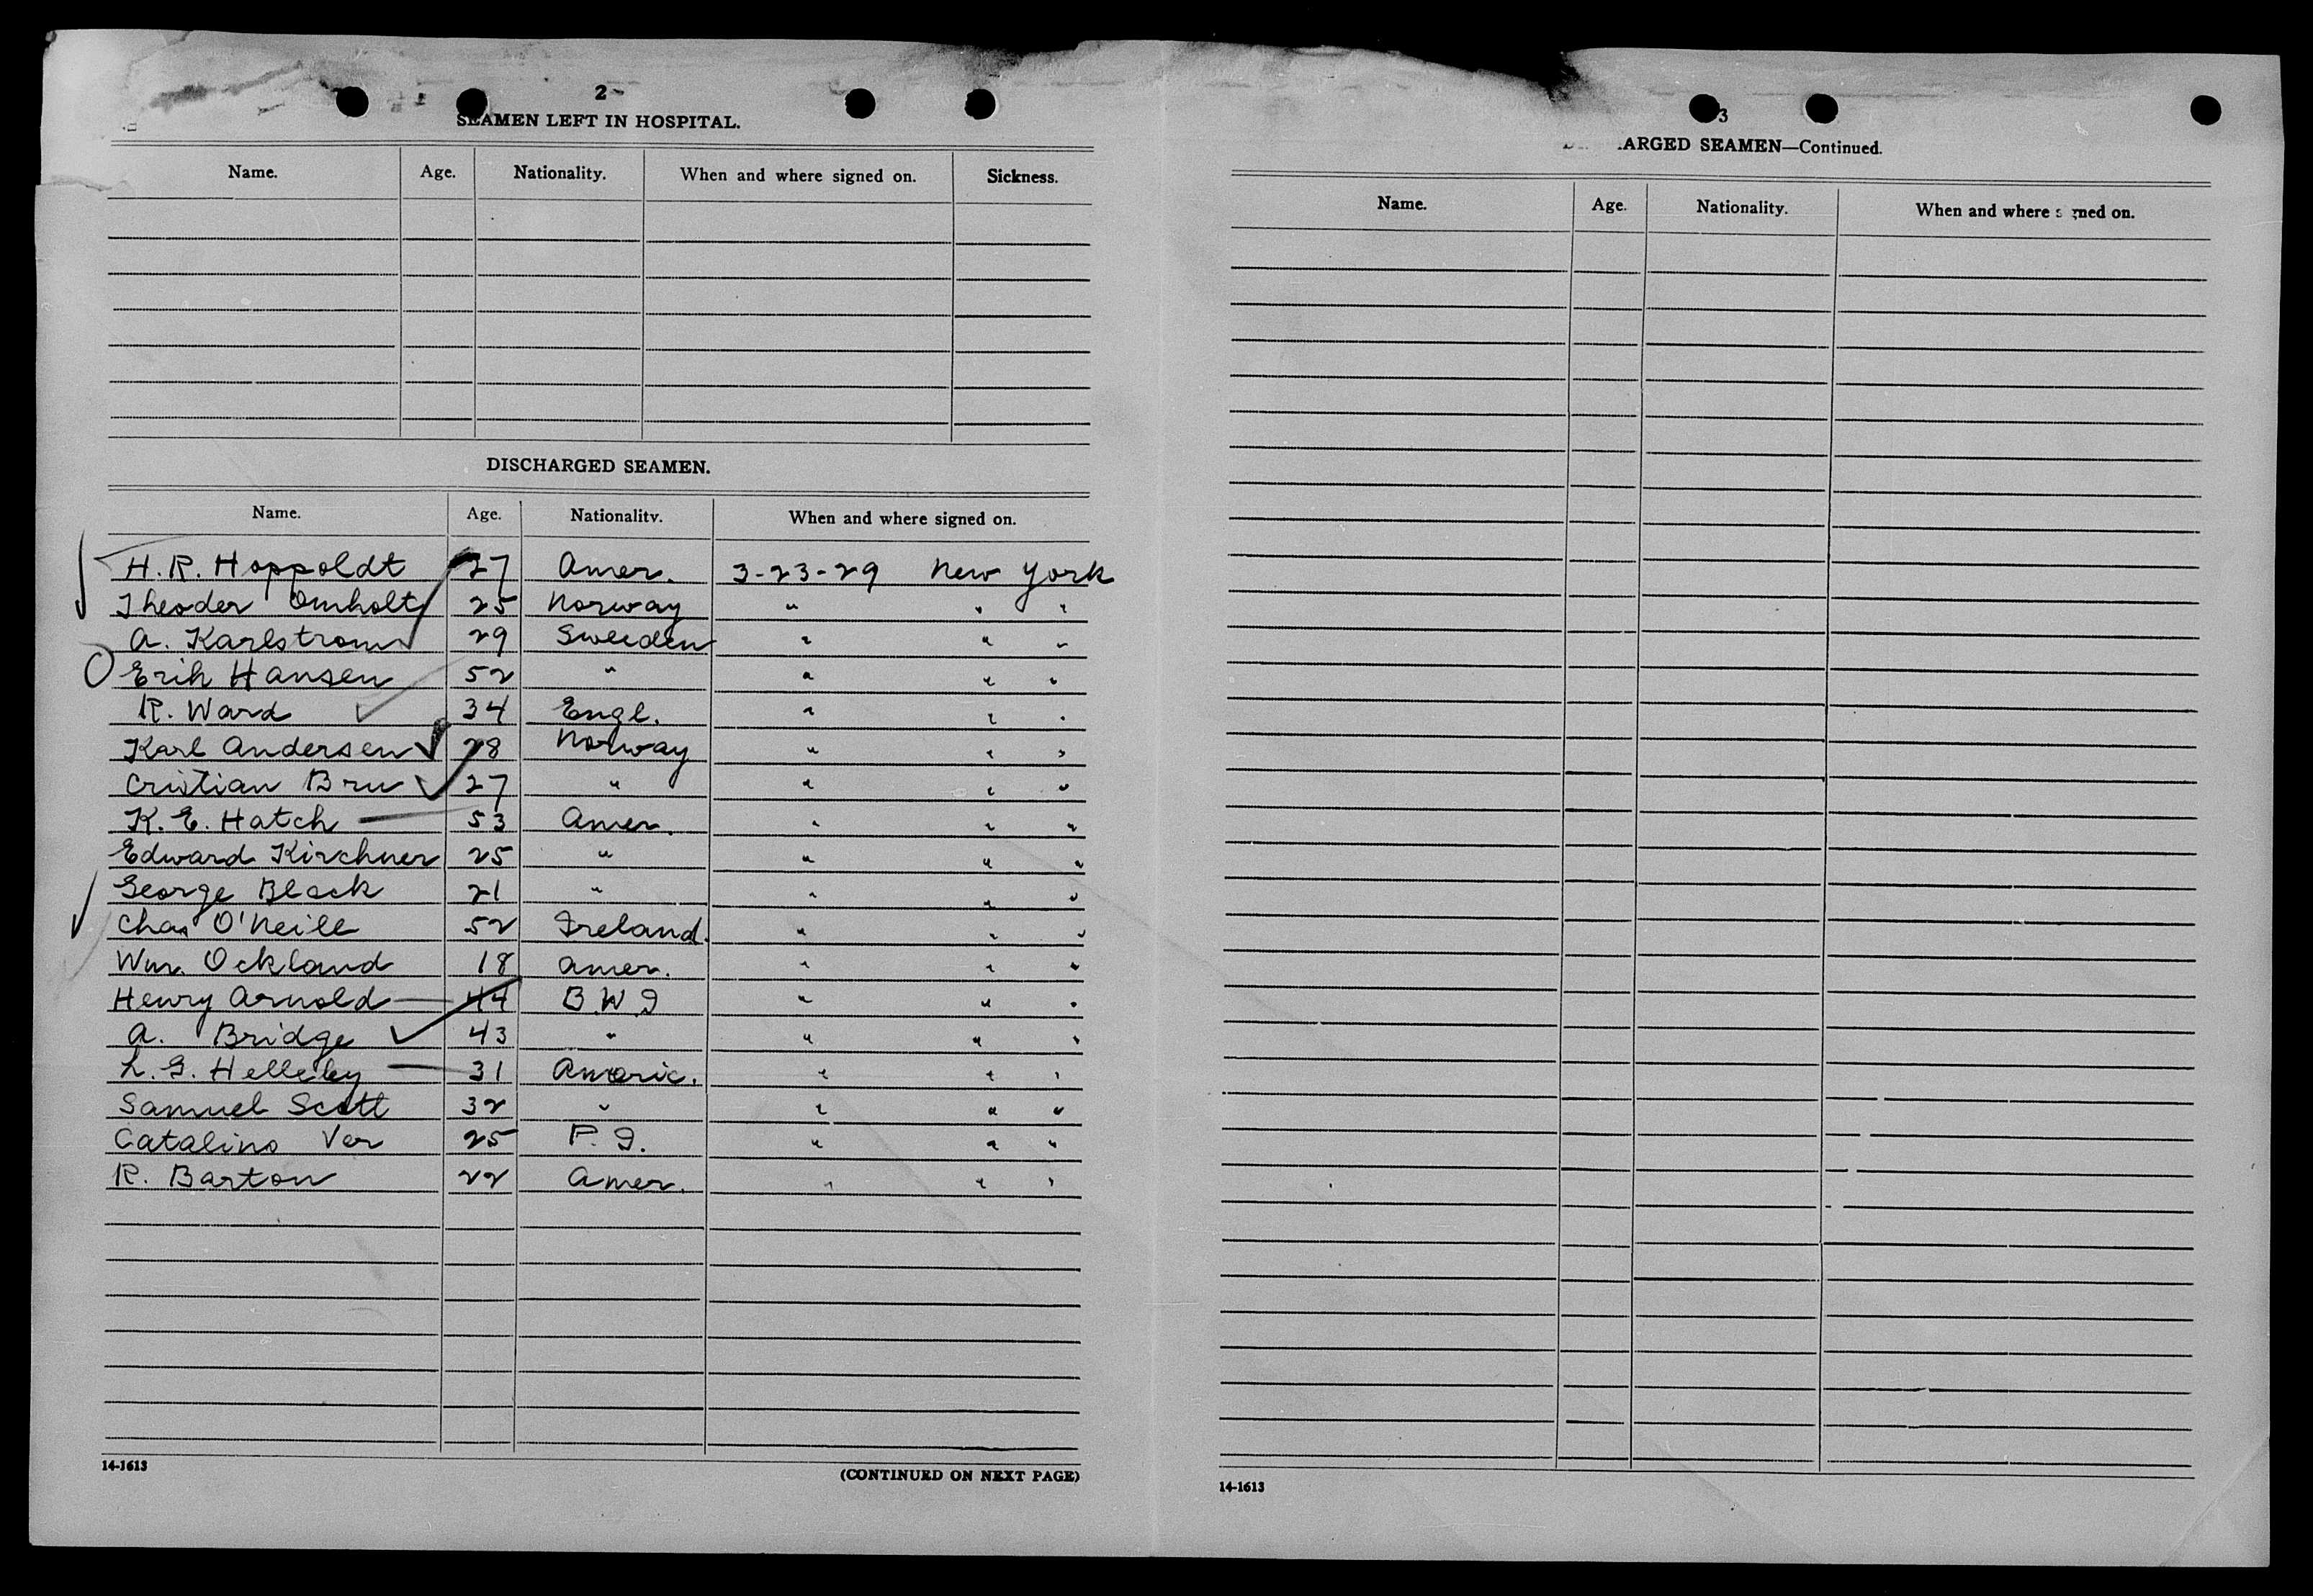 2
SEAMEN LEFT IN HOSPITAL.
Name. Age. Nationality. When and where signed on. Sickness.
DISCHARGED SEAMEN.
Name. Age. Nationality. When and where signed on.
H. R. Hoppoldt 27 Amer. 3-23-29 New York
Theoder Omholt 25 Norway " " "
A. Karlstrom 29 Sweeden " " "
Erik Hansen 52 " " " "
R. Ward 34 Engl. " " "
Karl Andersen 28 Norway " " "
Cristian Bru 27 " " " "
K. E. Hatch 53 Amer. " " "
Edward Kirchner 25 " " " "
George Black 21 " " " "
Chas O'Neill 52 Ireland. " " "
Wm. Ockland 18 Amer. " " "
Henry Arnold 44 B.W.I " " "
A. Bridge 43 " " " "
L. G. Helleby 31 Americ. " " "
Samuel Scott 32 " " " "
Catalino Ver 25 P. I. " " "
R. Barton 22 Amer. " " "
14-1613
(CONTINUED ON NEXT PAGE)
3
ARGED SEAMEN—Continued.
Name. Age. Nationality. When and where s gned on.
14-1613